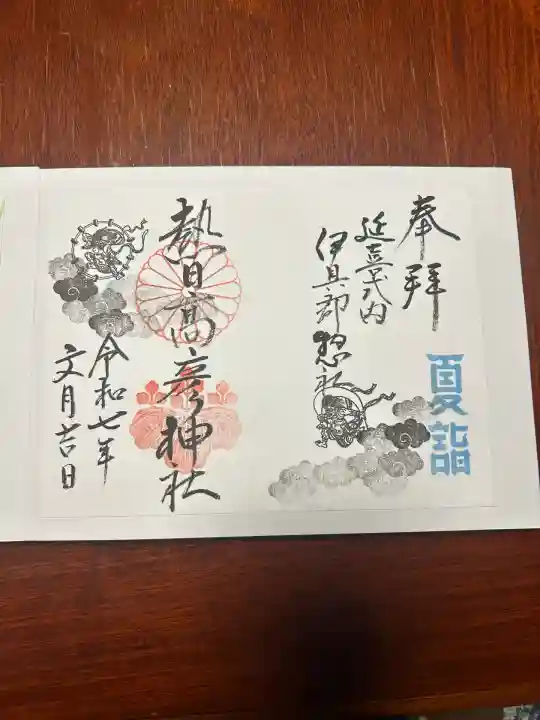 奉拝
延喜式内
伊具郡惣社
夏詣
熱日高彦神社
令和七年
文月吉日